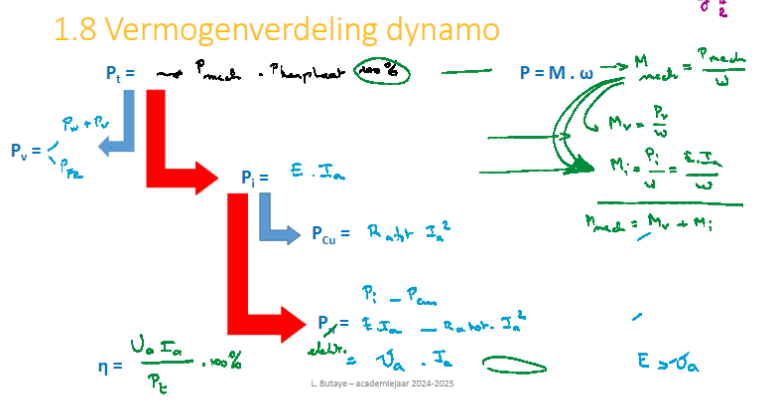 1.8 Vermogenverdeling dynamo
P_t = → P_mech · 100%
P = M . ω → M_mech = P_mech / ω
P_v = P_w + P_v
P_Fe
M_v = P_v / ω
P_i = E . I_a
M_i = P_i / ω = E.I_a / ω
M_mech = M_v + M_i
P_Cu = R_atot I_a²
P_i – P_cu
P = E.I_a – R_atot . I_a²
elektr. = U_a . I_a
E > U_a
η = U_a I_a / P_t . 100%
L. Butaye – academiejaar 2024-2025